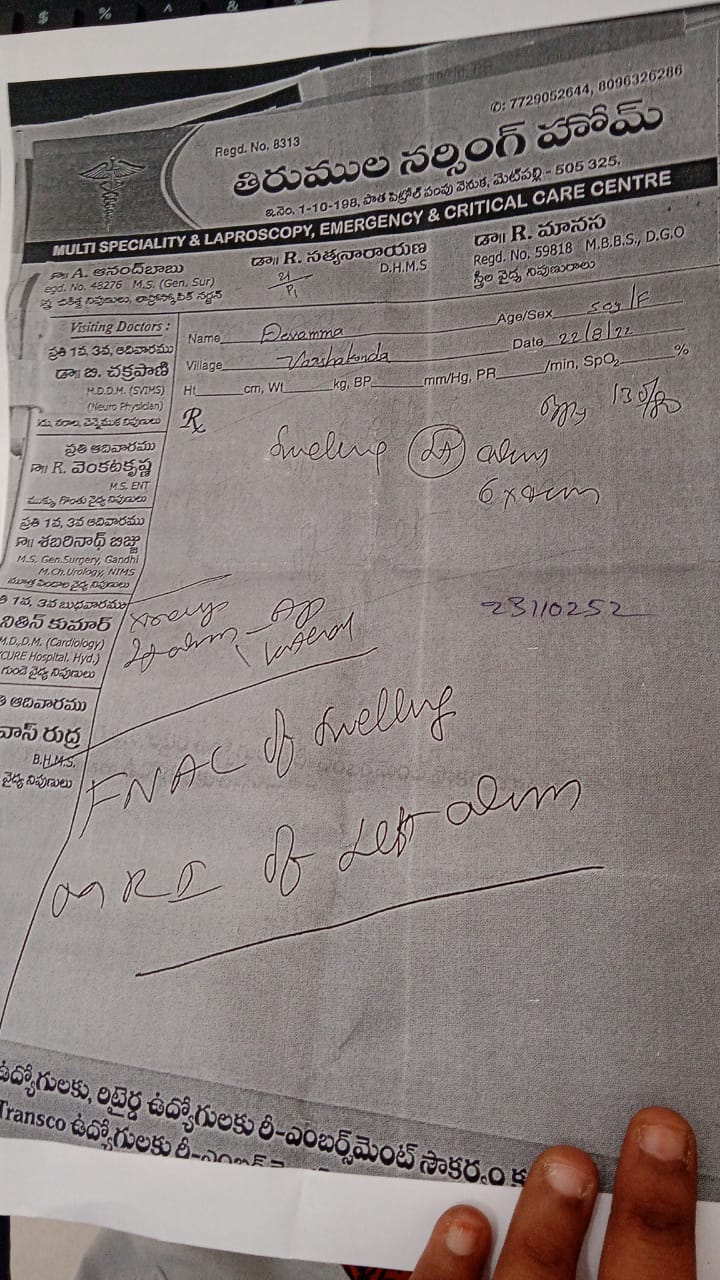 $ % ^ &
✆: 7729052644, 8096326286
Regd. No. 8313
తిరుముల నర్సింగ్ హోమ్
ఇ.నెం. 1-10-198, పాత పెట్రోల్ పంపు వెనుక, మెట్‌పల్లి - 505 325.
MULTI SPECIALITY & LAPROSCOPY, EMERGENCY & CRITICAL CARE CENTRE
డా॥ A. ఆనంద్‌బాబు
egd. No. 48276 M.S. (Gen. Sur)
చికిత్స నిపుణులు, లాప్రోస్కోపిక్ సర్జన్
డా॥ R. సత్యనారాయణ
D.H.M.S
డా॥ R. మానస
Regd. No. 59818 M.B.B.S., D.G.O
స్త్రీల వైద్య నిపుణురాలు
Visiting Doctors :
ప్రతి 1వ, 3వ, ఆదివారము
డా॥ బి. చక్రపాణి
M.D.D.M. (SVIMS)
(Neuro Physician)
నరాల, వెన్నెముక నిపుణులు
ప్రతి ఆదివారము
డా॥ R. వెంకటకృష్ణ
M.S. ENT
ముక్కు, గొంతు వైద్య నిపుణులు
ప్రతి 1వ, 3వ ఆదివారము
డా॥ శబరినాథ్ బిజ్జు
M.S. Gen.Surgery, Gandhi
M.Ch.Urology, NIMS
మూత్ర పిండాల వైద్య నిపుణులు
తి 1వ, 3వ బుధవారము
నితిన్ కుమార్
M.D.,D.M. (Cardiology)
(CURE Hospital, Hyd.)
గుండె వైద్య నిపుణులు
తి ఆదివారము
వాస్ రుద్ర
B.H.M.S.
వైద్య నిపుణులు
Name Devamma Age/Sex 50y/F
Village Date 22/8/22
Ht cm, Wt kg, BP mm/Hg, PR /min, SpO₂ %
Rx
Swelling
23110252
AP
Lateral
FNAC of Swelling
MRI of Left
ఉద్యోగులకు, రిటైర్డ్ ఉద్యోగులకు రీ-ఎంబర్స్‌మెంట్ సౌకర్యం
Transco ఉద్యోగులకు